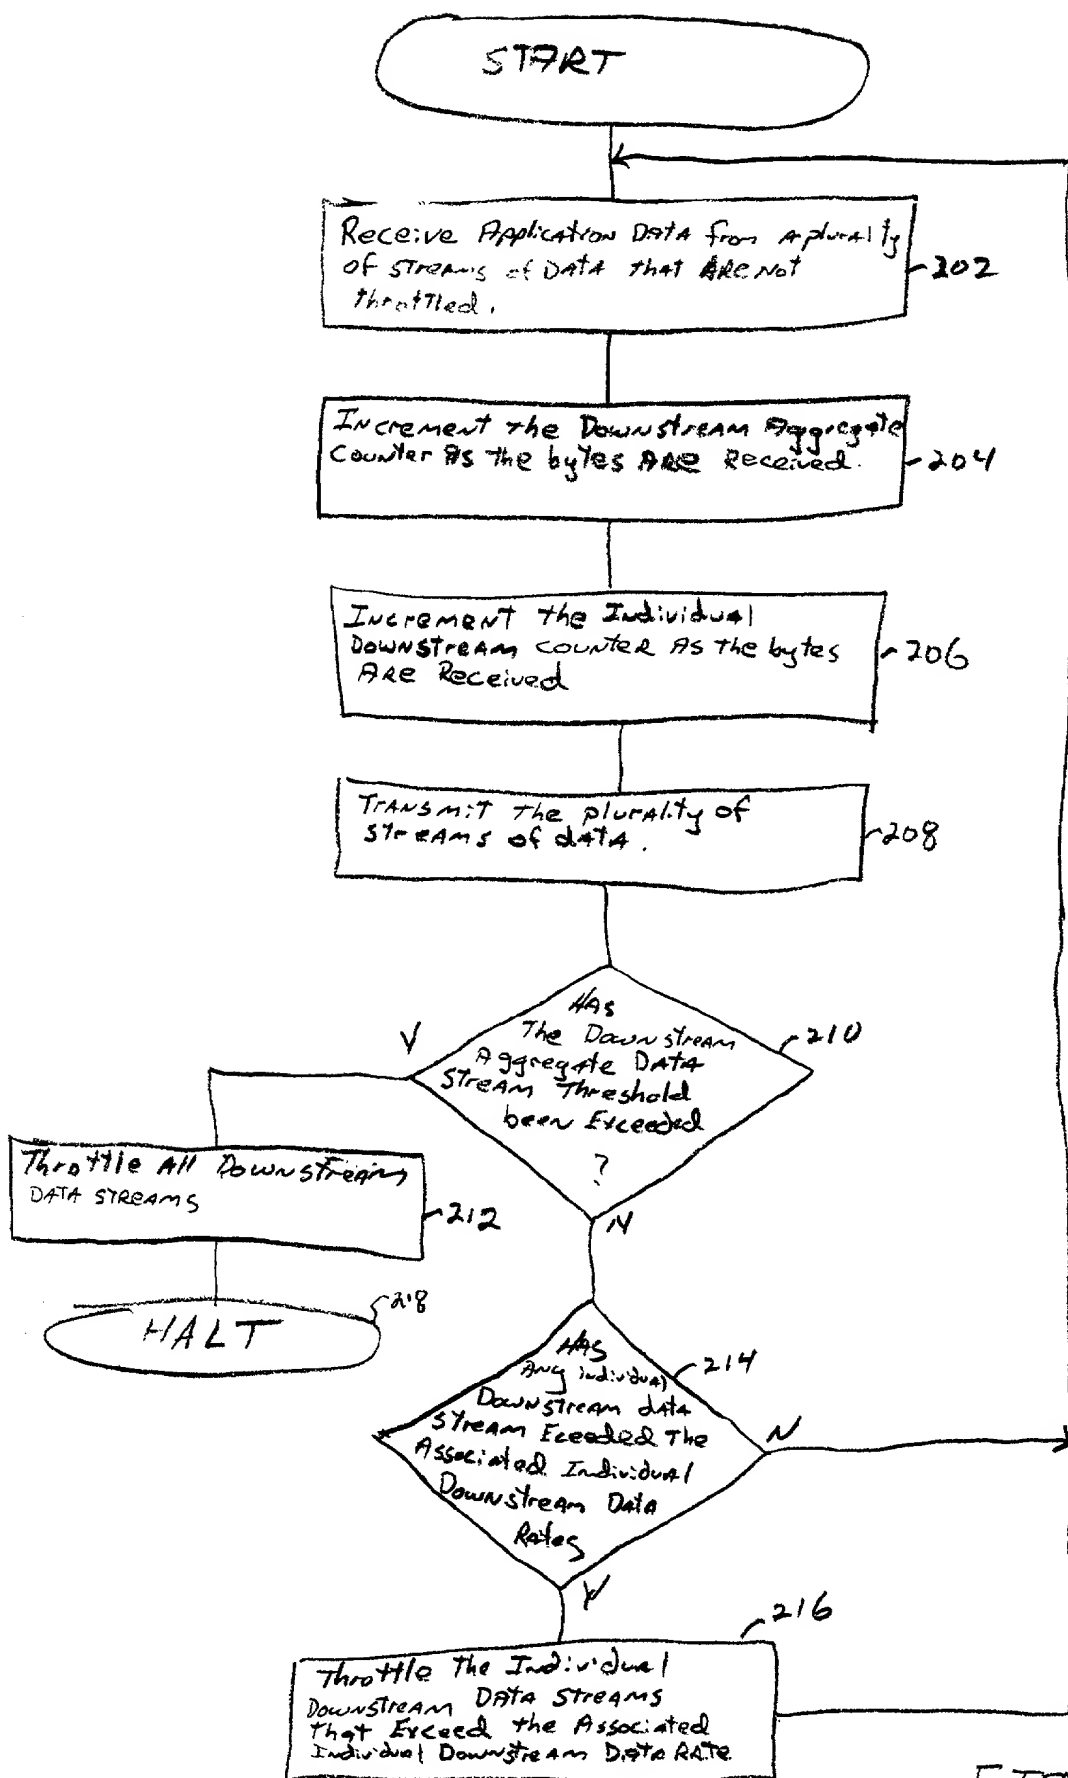 START
Receive Application Data from a plurality
of streams of Data that Are Not
throttled.
202
Increment the Downstream Aggregate
Counter As the bytes ARe Received.
204
Increment the Individual
Downstream counter As the bytes
ARe Received
206
Transmit the plurality of
streams of data.
208
Has
The Downstream
Aggregate Data
Stream Threshold
been Exceeded
?
210
Y
N
Throttle All Downstream
Data streams
212
HALT
218
Has
Any individual
Downstream data
stream Eceeded The
Associated Individual
Downstream Data
Rates
214
N
Y
216
Throttle The Individual
Downstream Data Streams
that Exceed the Associated
Individual Downstream Data Rate